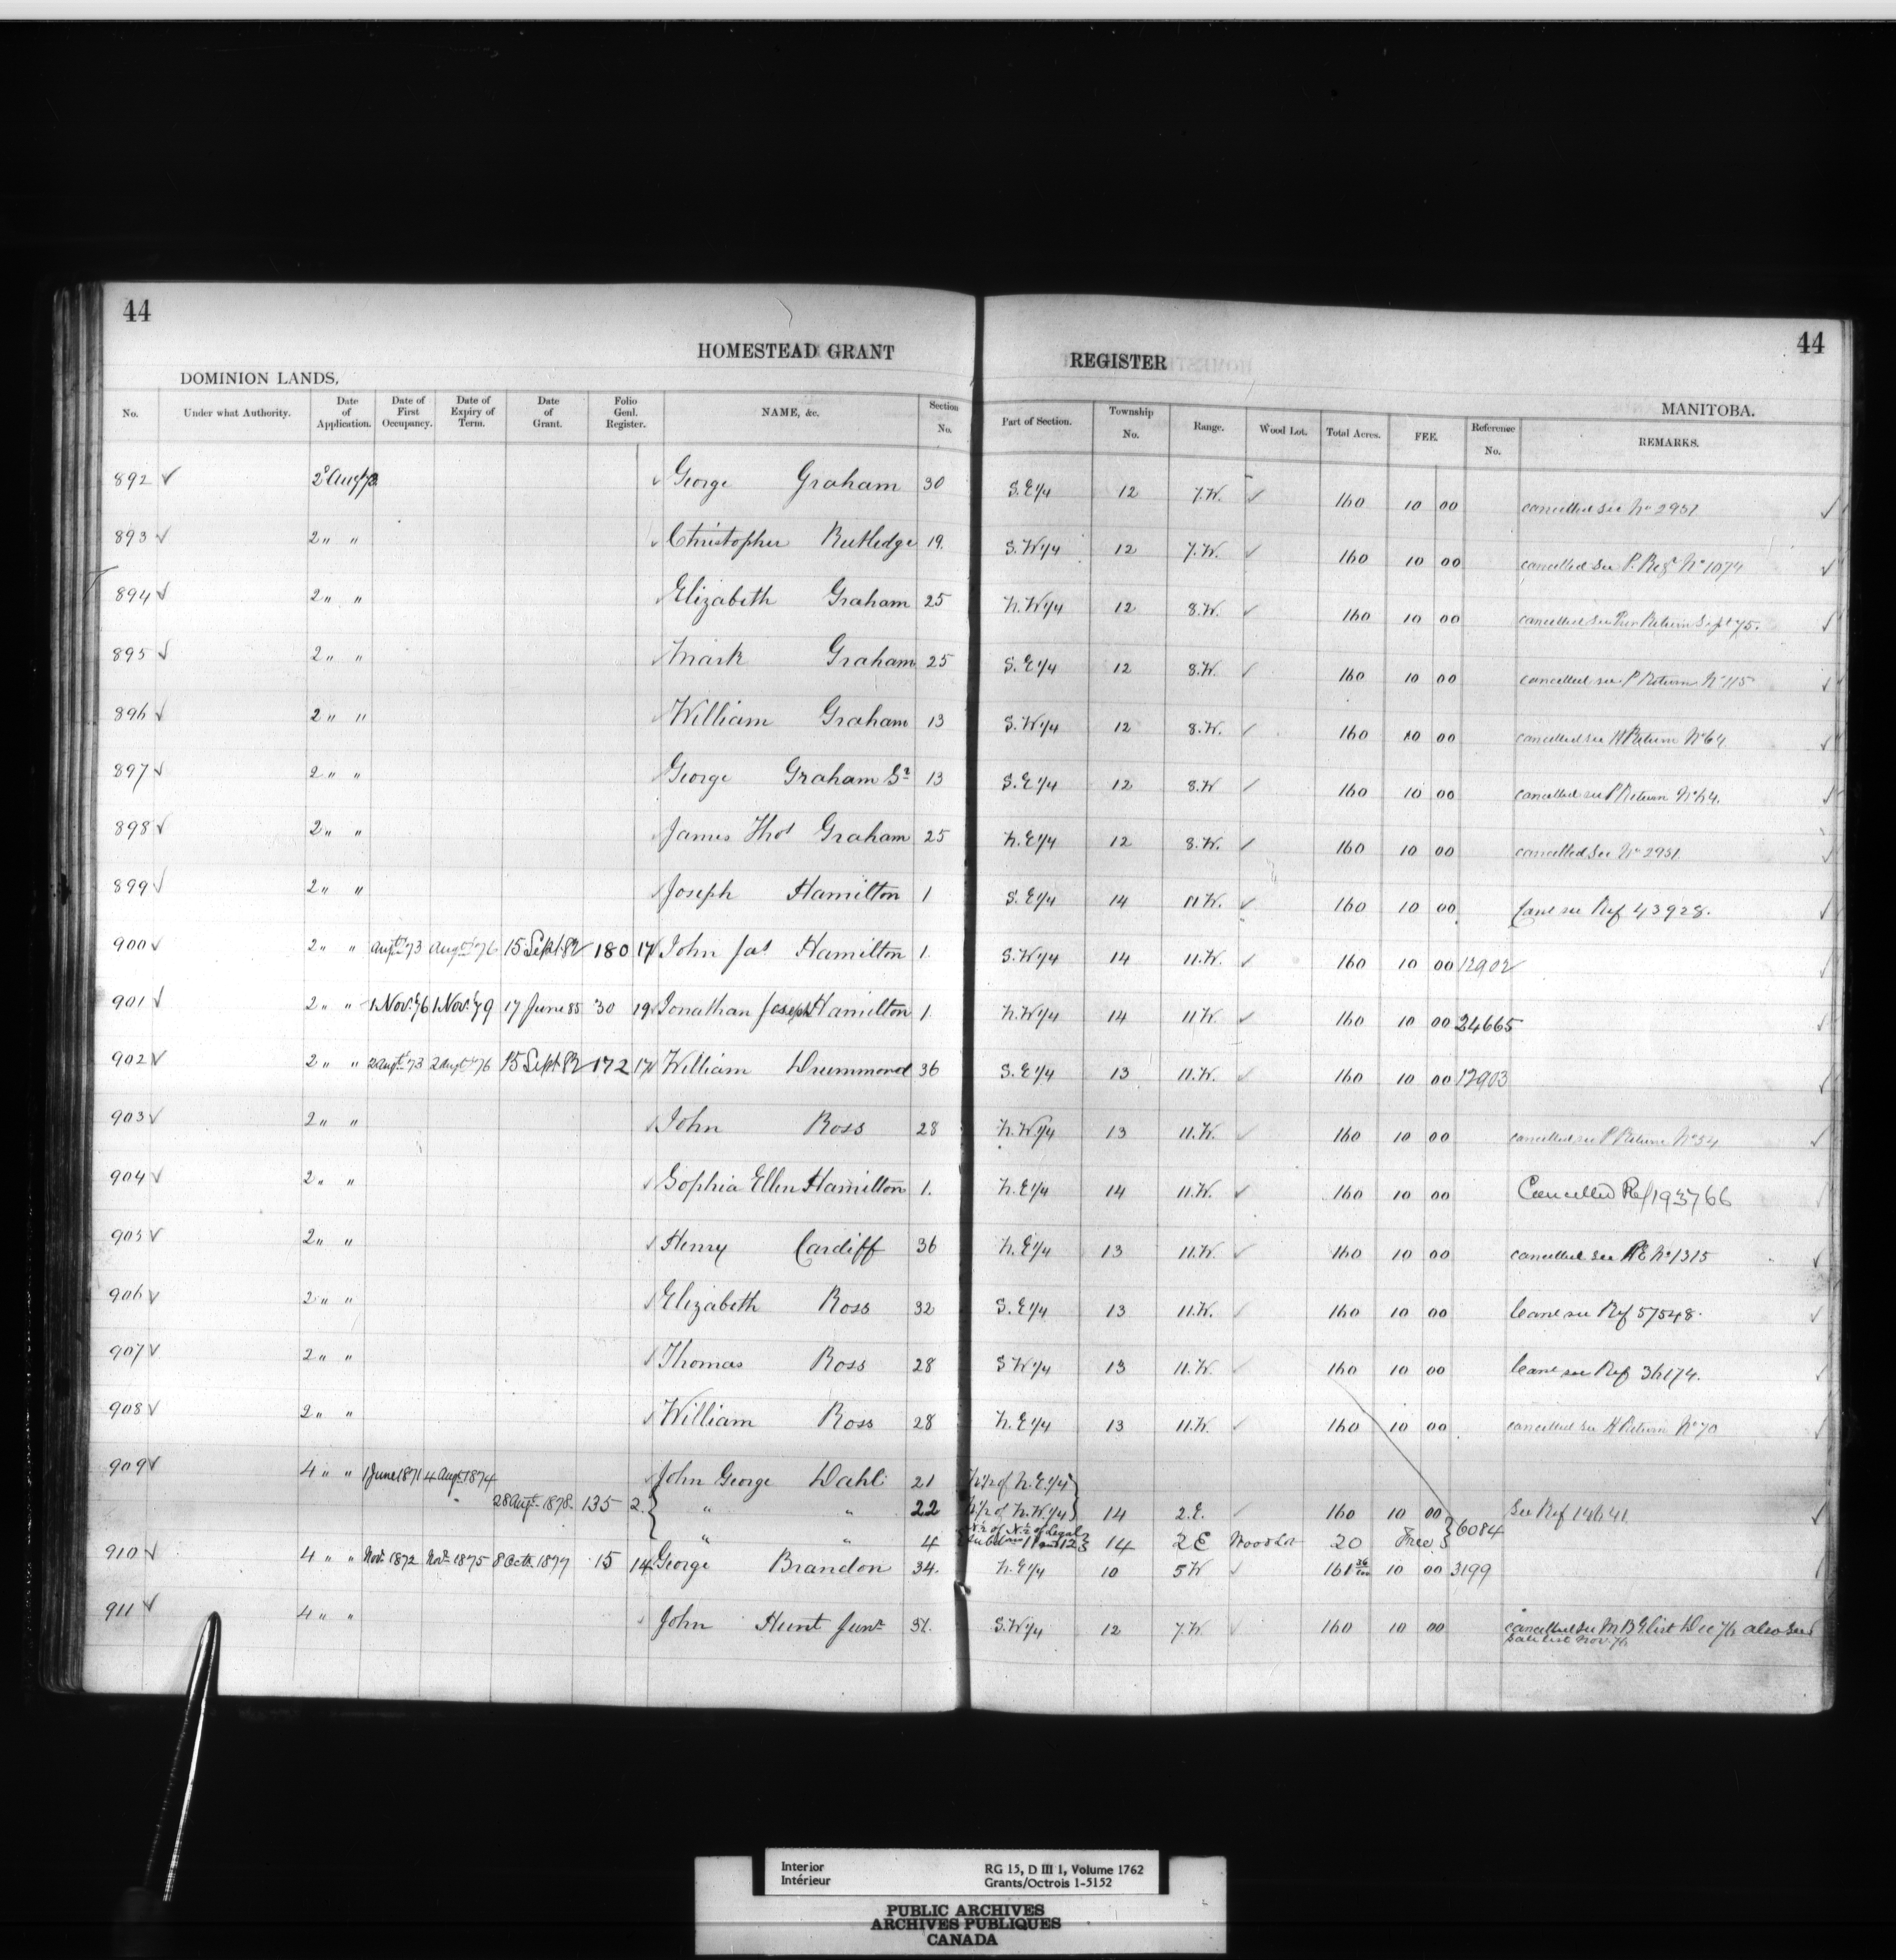 44
44
HOMESTEAD GRANT REGISTER
DOMINION LANDS,
MANITOBA.
No. Under what Authority. Date of Application. Date of First Occupancy. Date of Expiry of Term. Date of Grant. Folio Genl. Register. NAME, &c. Section No. Part of Section. Township No. Range. Wood Lot. Total Acres. FEE. Reference No. REMARKS.
892 2 Aug George Graham 30 S.E 1/4 12 7.W. 160 10 00 cancelled see No 2951
893 2 " " Christopher Rutledge 19. S.W 1/4 12 7.W. 160 10 00 cancelled see P. No 1074
894 2 " " Elizabeth Graham 25 N.W 1/4 12 8.W. 160 10 00 cancelled see Return Sept 75.
895 2 " " Mark Graham 25 S.E 1/4 12 8.W. 160 10 00 cancelled see P Return No 115
896 2 " " William Graham 13 S.W 1/4 12 8.W. 160 10 00 cancelled see H Return No 64
897 2 " " George Graham Sr 13 S.E 1/4 12 8.W 160 10 00 cancelled see P Return No 64.
898 2 " " James Thos Graham 25 N.E 1/4 12 8.W. 160 10 00 cancelled see No 2951
899 2 " " Joseph Hamilton 1 S.E 1/4 14 11 W. 160 10 00 Canc see Ref 43928.
900 2 " " Augt 73 Augt 76 15 Sept. 82 180 17 John Jas Hamilton 1. S.W 1/4 14 11.W. 160 10 00 12902
901 2 " " 1 Nov. 76 1 Nov. 79 17 June 85 30 19 Jonathan Joseph Hamilton 1. N.W 1/4 14 11 W. 160 10 00 24665
902 2 " " 2 Augt 73 2 Augt 76 15 Sept. 82 172 17 William Drummond 36 S.E 1/4 13 11.W. 160 10 00 12903
903 2 " " John Ross 28 N.W 1/4 13 11.W. 160 10 00 cancelled see P Return No 54
904 2 " " Sophia Ellen Hamilton 1. N.E 1/4 14 11.W. 160 10 00 Cancelled Ref 193766
905 2 " " Henry Cardiff 36 N.E 1/4 13 11.W. 160 10 00 cancelled see No 1315
906 2 " " Elizabeth Ross 32 S.E 1/4 13 11.W. 160 10 00 Canc see Ref 57548.
907 2 " " Thomas Ross 28 S W 1/4 13 11.W. 160 10 00 Canc see Ref 36174.
908 2 " " William Ross 28 N.E 1/4 13 11.W. 160 10 00 cancelled see H Return No 70
909 4 " " 1 June 1871 4 Augt 1874 John George Dahl 21 of N.E 1/4
28 Augt 1878 135 2. " " 22 of N.W 1/4 14 2.E. 160 10 00 6084 See Ref
" " 4 N 1/2 of N 1/2 of Legal Subdivns 11 and 12 14 2 E Wood Lot 20 Free
910 4 " " Nov. 1872 Nov. 1875 8 Octr. 1877 15 14 George Brandon 34. N.E 1/4 10 5 W 161 36/100 10 00 3199
911 4 " " John Hunt Junr 31. S.W 1/4 12 7.W 160 10 00 cancelled see list Dec 76 also see
list Nov. 76
Interior
Intérieur
RG 15, D III 1, Volume 1762
Grants/Octrois 1-5152
PUBLIC ARCHIVES
ARCHIVES PUBLIQUES
CANADA